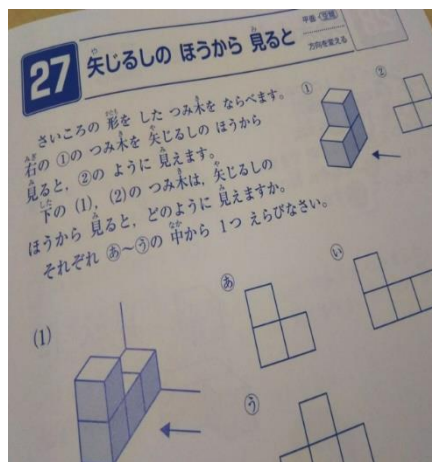 27
矢じるしの ほうから 見ると
や
み
平面・空間
方向を変える
さいころの 形を した つみ木を ならべます。
かたち
き
右の ①の つみ木を 矢じるしの ほうから
みぎ
き
や
見ると，②の ように 見えます。
み
み
下の (1), (2)の つみ木は，矢じるしの
した
き
や
ほうから 見ると，どのように 見えますか。
み
み
それぞれ あ～うの 中から 1つ えらびなさい。
なか
①
②
(1)
あ
い
う